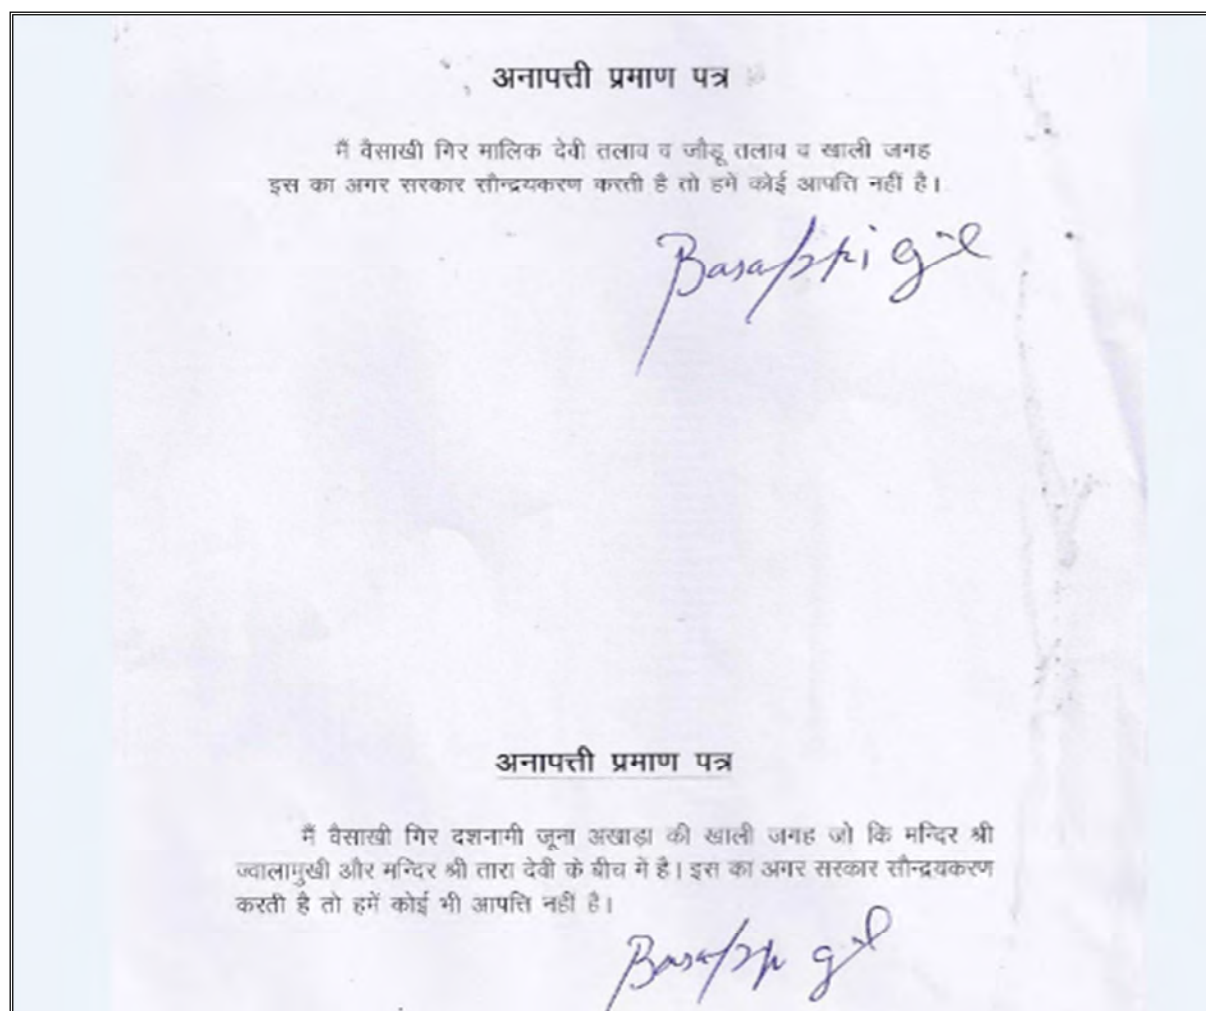 अनापत्ती प्रमाण पत्र
मैं वैसाखी गिर मालिक देवी तलाव व जौड़ू तलाव व खाली जगह
इस का अगर सरकार सौन्द्रयकरण करती है तो हमें कोई आपत्ति नहीं है।
अनापत्ती प्रमाण पत्र
मैं वैसाखी गिर दशनामी जूना अखाड़ा की खाली जगह जो कि मन्दिर श्री
ज्वालामुखी और मन्दिर श्री तारा देवी के बीच में है। इस का अगर सरकार सौन्द्रयकरण
करती है तो हमें कोई भी आपत्ति नहीं है।